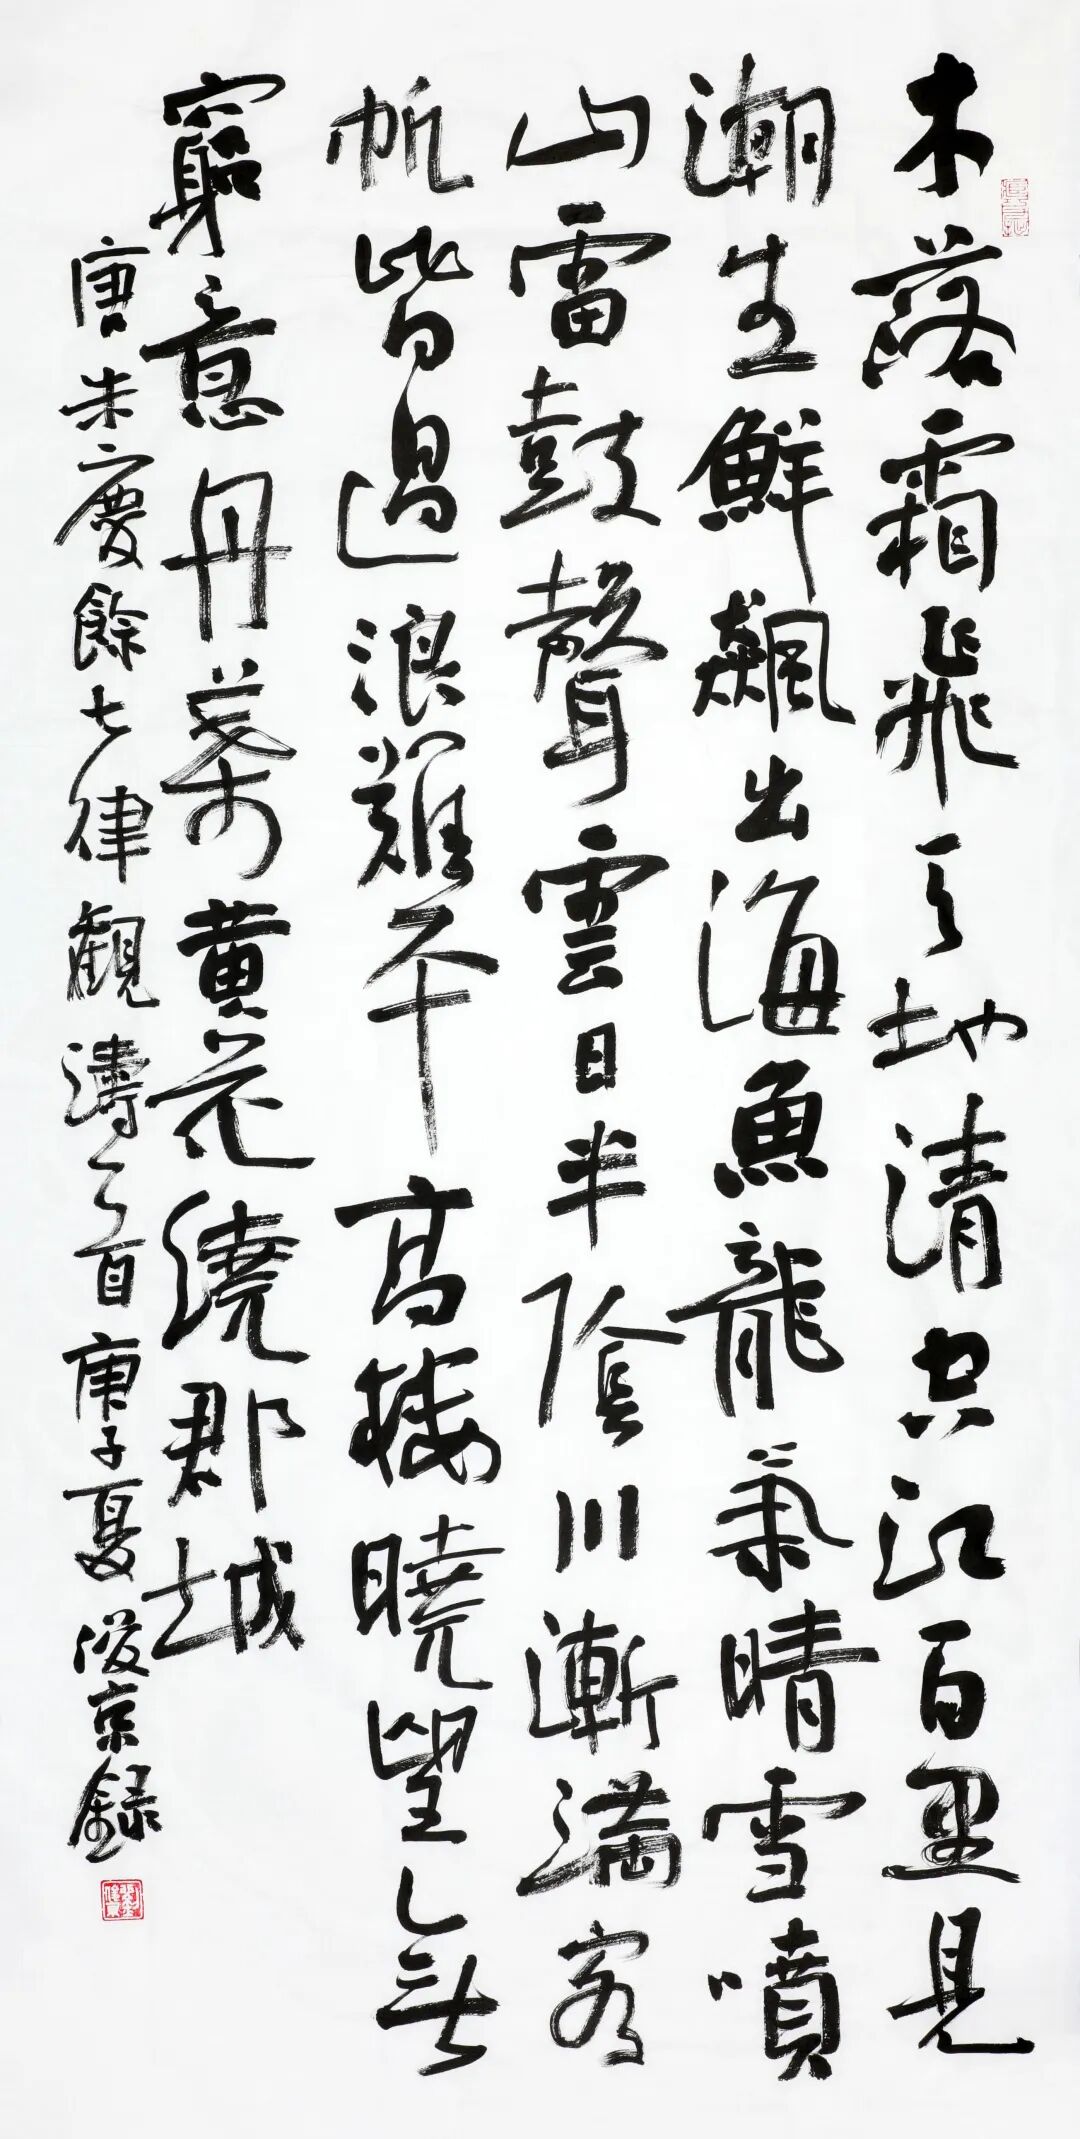 木落霜飛天地清空江百里見
潮生鮮飆出海魚龍氣晴雪噴
山雷鼓聲雲日半陰川漸滿客
帆皆過浪難平高樓曉望無
窮意丹葉黃花繞郡城
唐朱慶餘七律觀濤一首庚子夏俊京錄